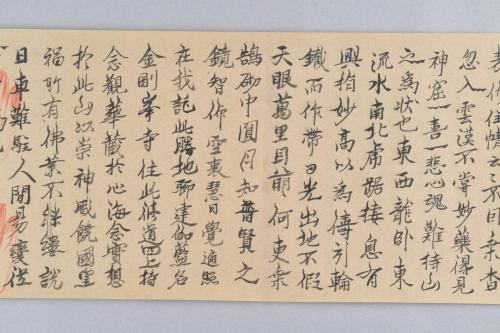 忽入雲漢不嘗妙藥得見
神窟一喜一悲心魂難持山
之為狀也東西龍臥東
流水南北虎踞棲息有
興指妙高以為儔引輪
鐵而作帶日光出地不假
天眼萬里目前何更乘
鵠砌中圓月知普賢之
鏡智仰空裏慧日覺遍照
在我託此勝地聊建伽藍名
金剛峯寺住此勝道四上持
念觀華藏於心海念實想
於此山以崇神威饒國
福所有佛業不縷說
日車難駐人間易變從